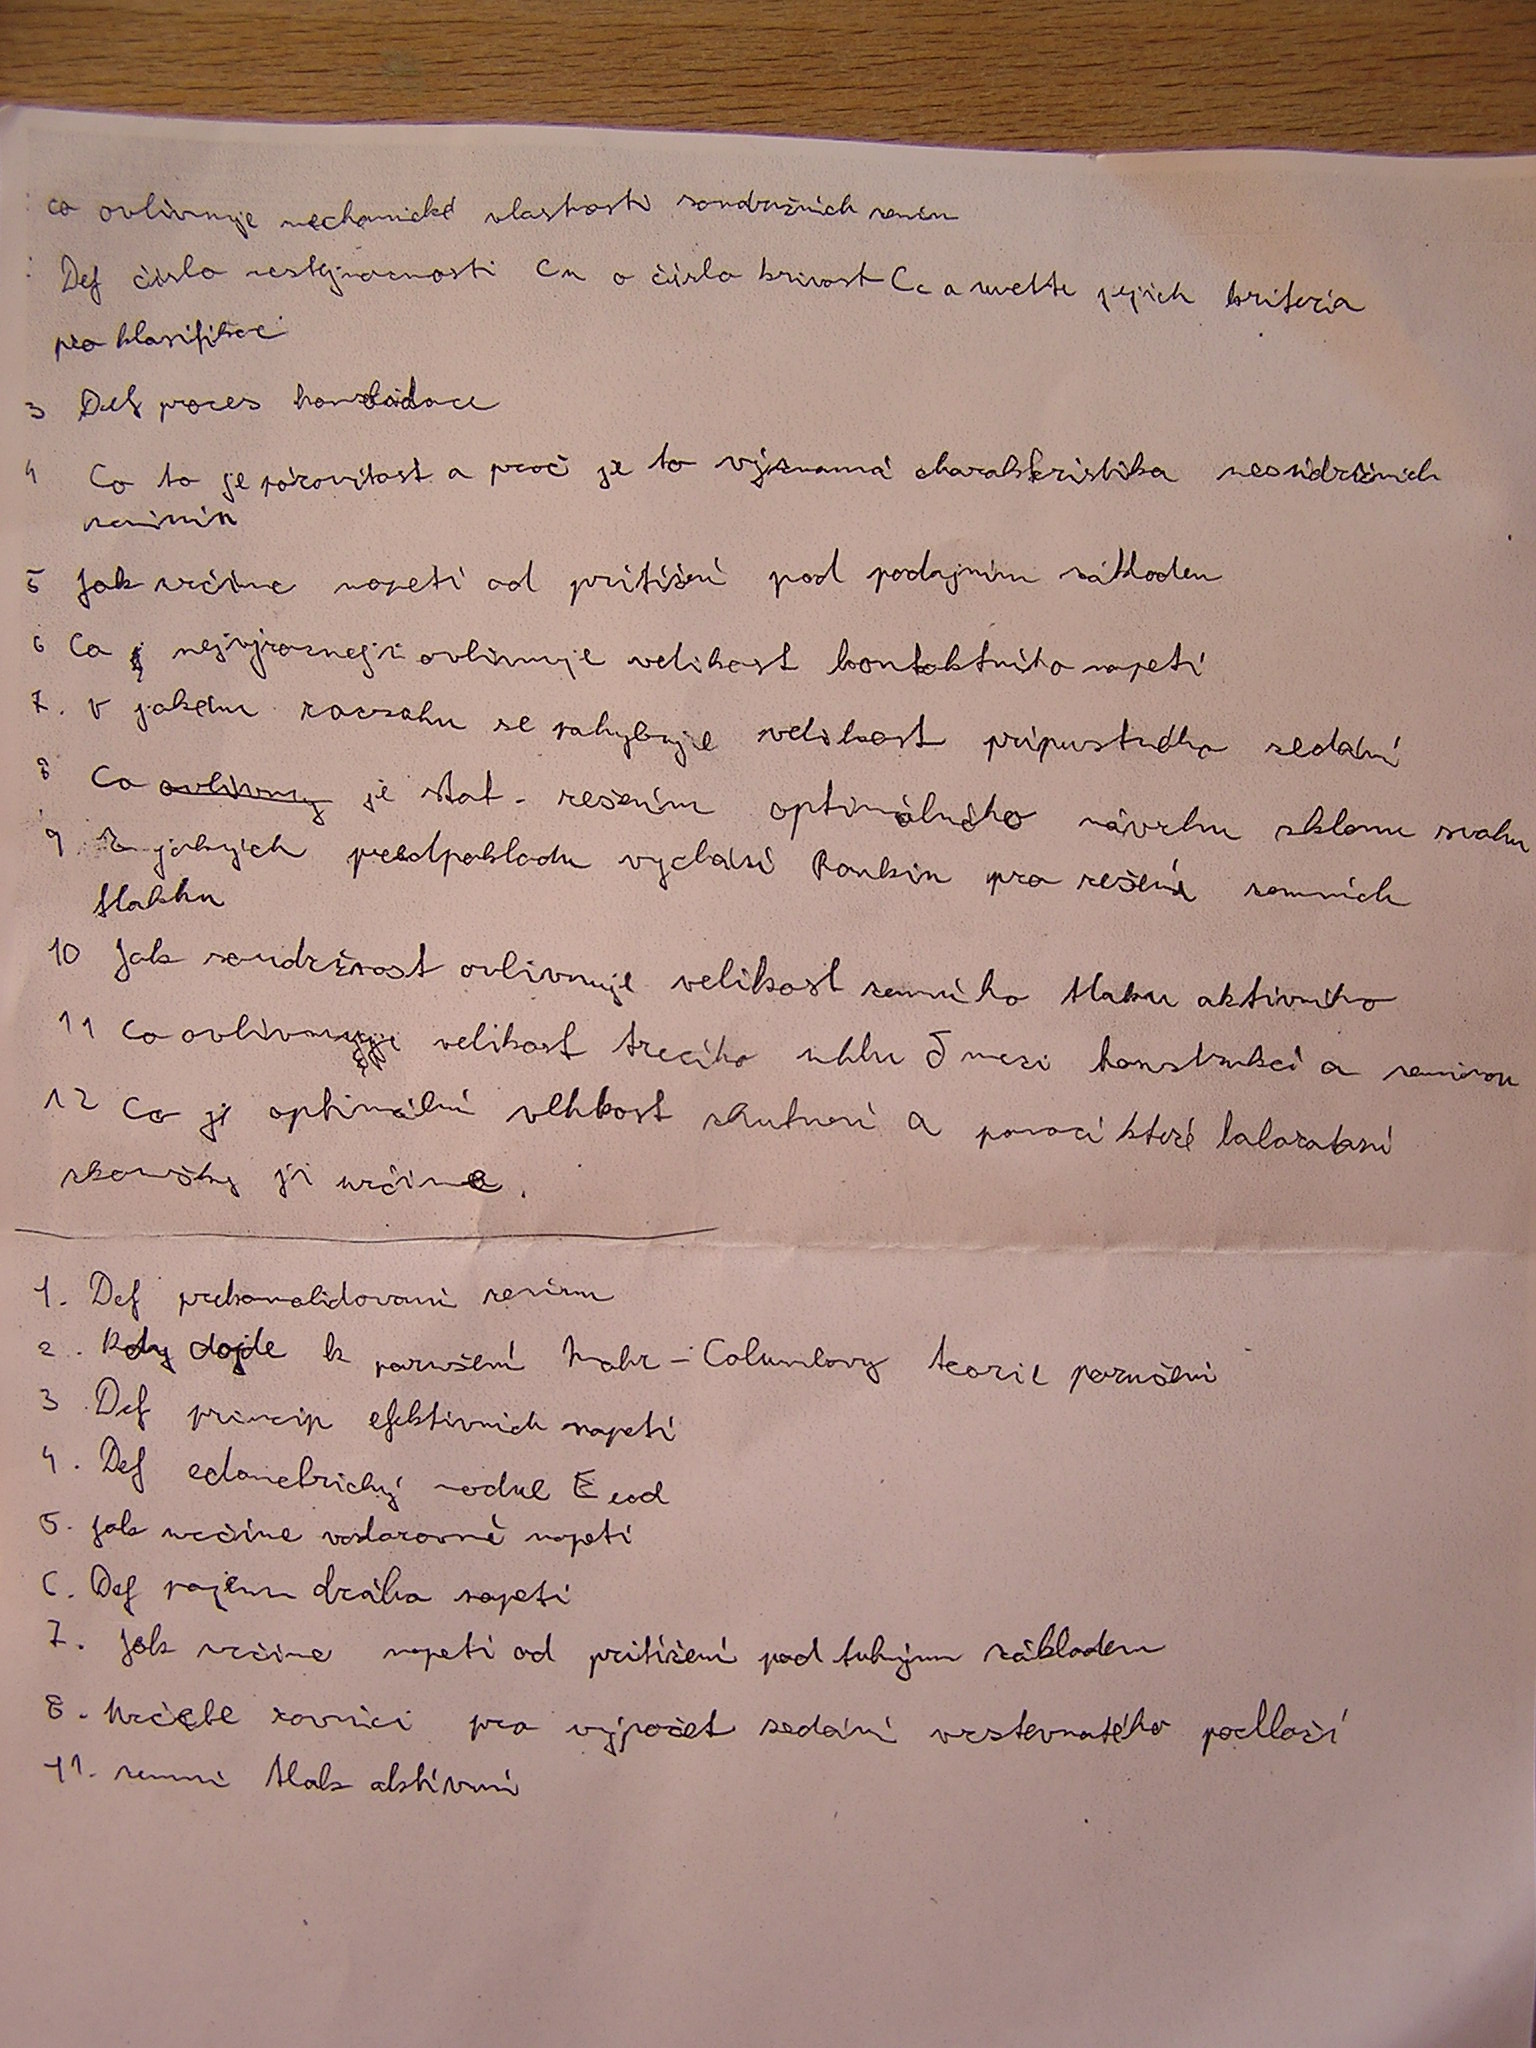 : co ovlivnuje mechanické vlastnosti soudružních zemin
: Def čísla nestejnoznosti Cu a čísla křivost Cc a uvedte jejich kriteria
pro klasifikaci
3 Def proces konsolidace
4 Co to je pórovitost a proč je to významná charakteristika nesoudržních
zeminin
5 Jak určíme napeti od pritížení pod podajním základem
6 Co nejvýrazneji ovlivnuje velikost kontaktního napetí
7. V jakém rozsahu se pohybuje velikost prípustného sedání
8 Co ovlivnuj je stat. rešením optimálního návrhu sklonu svahu
9 Z jakých predpokladu vychází Rankin pro rešení zemních
tlakku
10 Jak soudržnost ovlivnuje velikost zemního tlaku aktivního
11 Co ovlivnuje velikost trecího uhlu δ mezi konstrukcí a zeminou
12 Co je optimální vlhkost zhutnení a pomocí které laboratorní
zkoušky ji určíme.
1. Def prekonsolidovaní zeminu
2. Kdy dojde k porušení Mohr-Columbovy teorie porušení
3 Def princip efektivních napetí
4. Def edometrický modul E eod
5. Jak určíme vodorovné napetí
6. Def pojem dráha napetí
7. Jak určíme napetí od pritížení pod tuhým základem
8. Určete rovnici pro výpočet sedání vrstevnatého podloží
11. zemní tlak aktívní